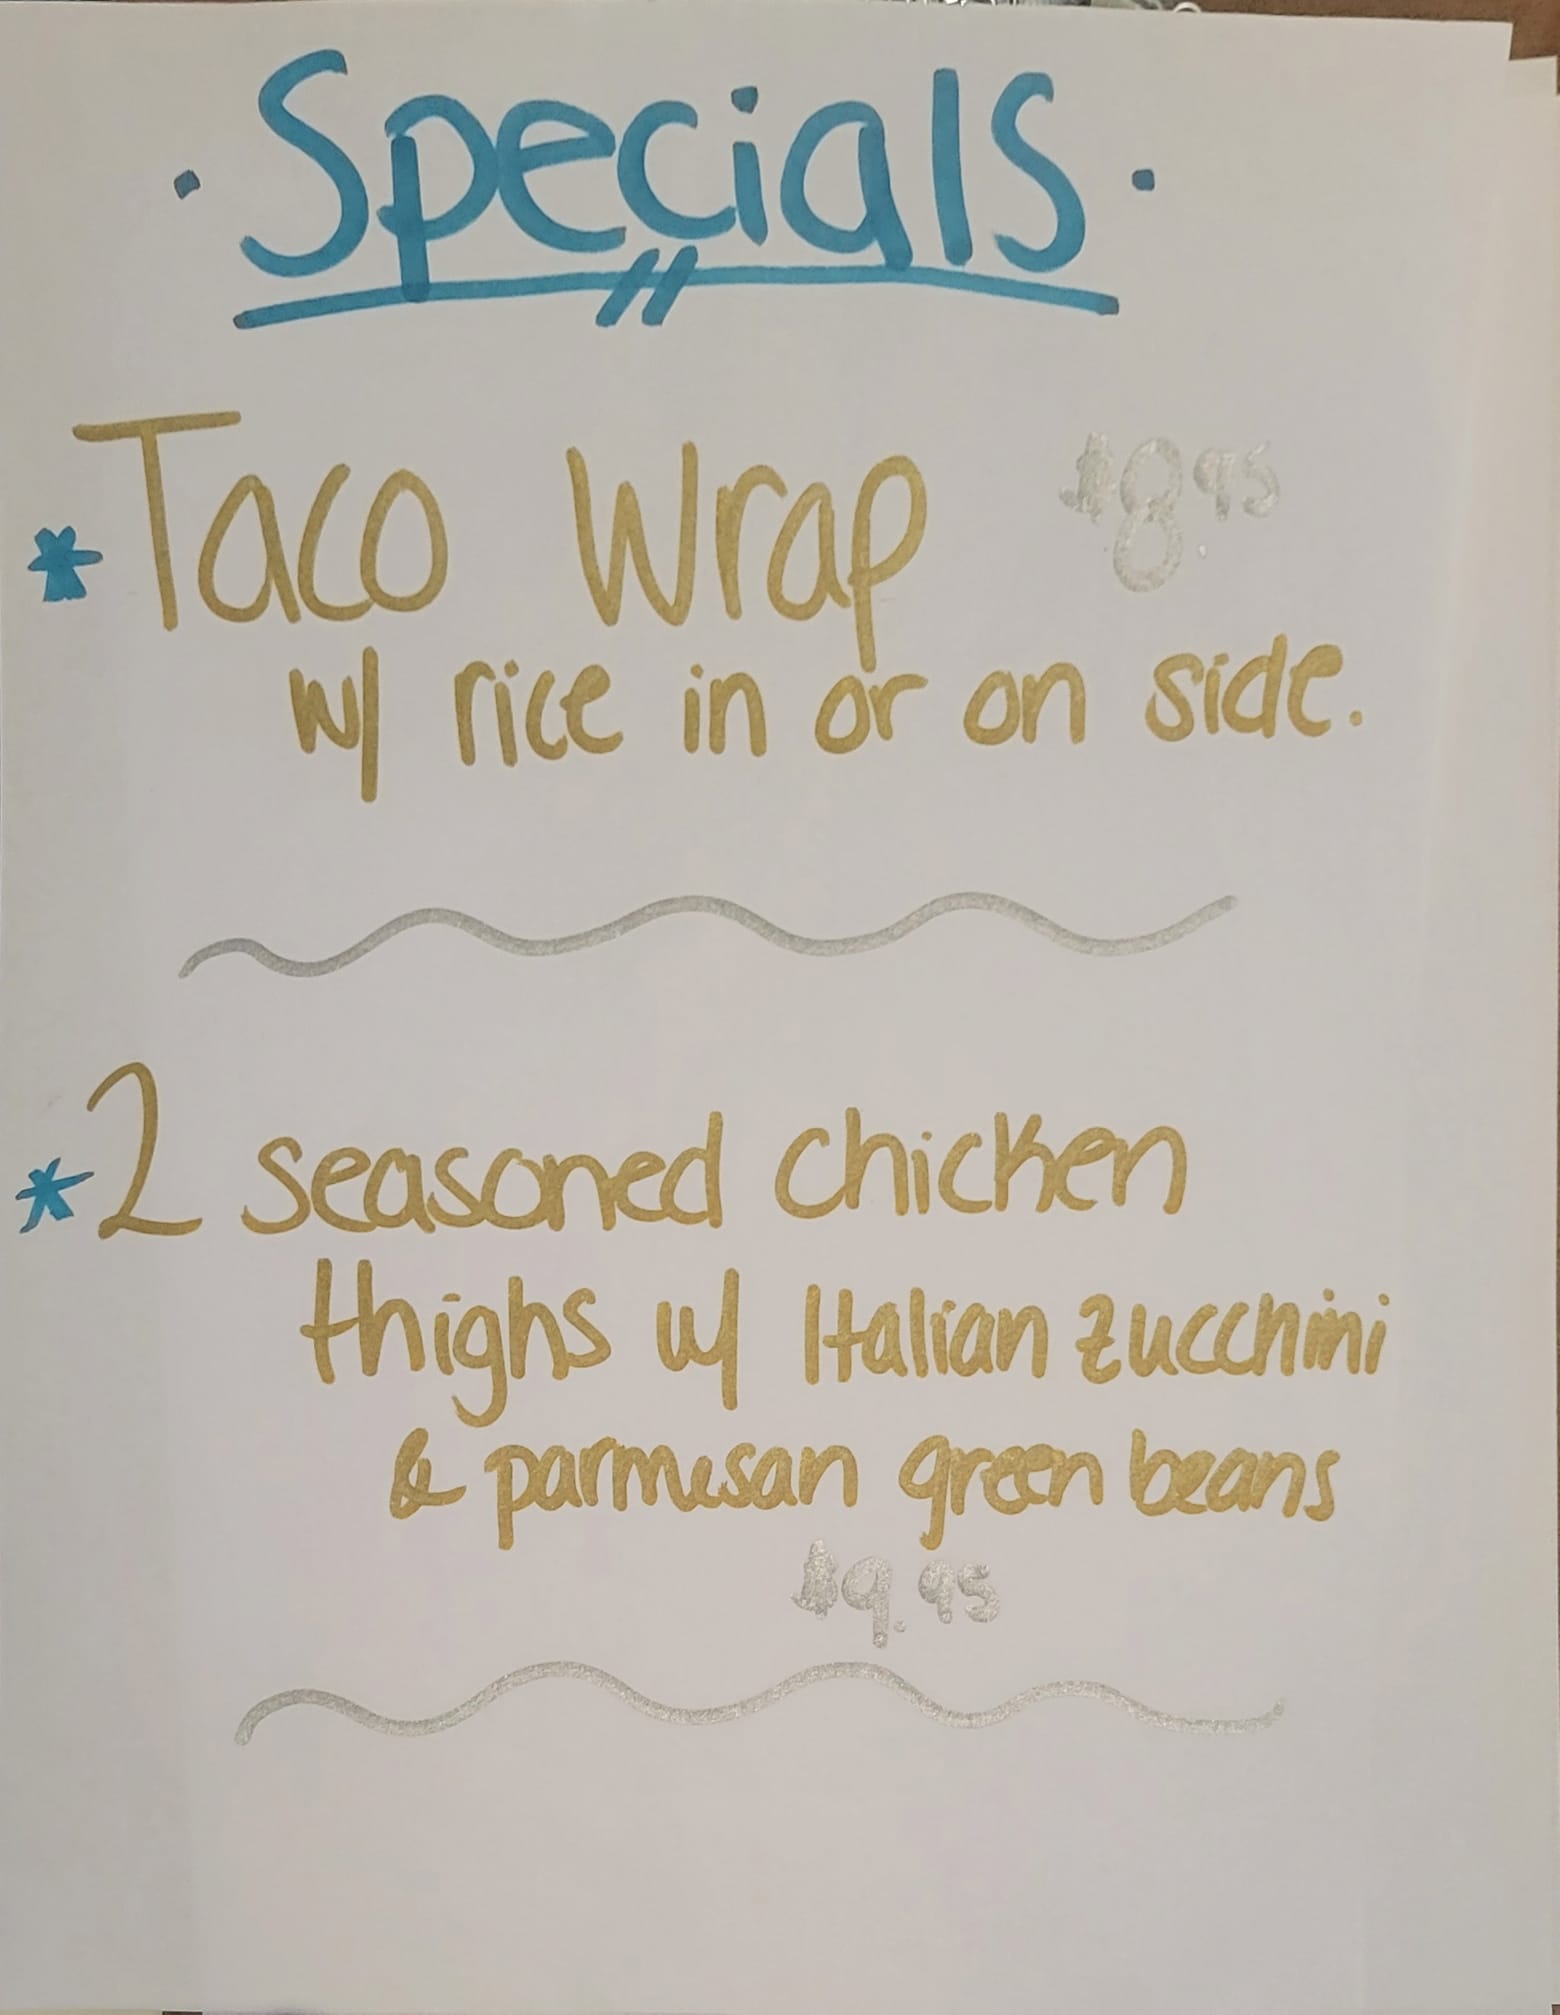 · Specials ·
* Taco Wrap $8.95
w/ rice in or on side.
* 2 seasoned chicken
thighs w/ Italian zucchini
& parmesan green beans
$9.95